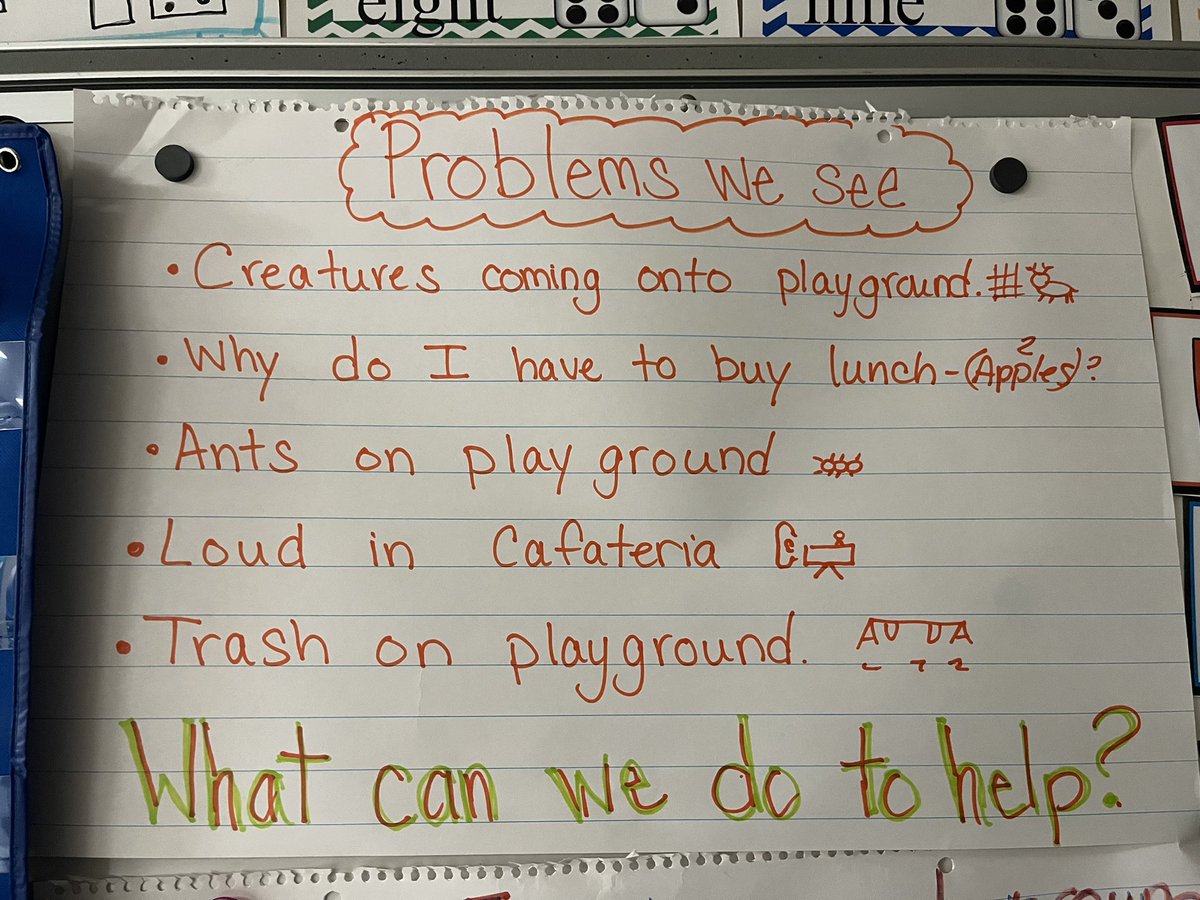 eight
nine
Problems we see
• Creatures coming onto playground.
• Why do I have to buy lunch-(Apples)?
2
• Ants on play ground
• Loud in Cafateria
• Trash on playground.
What can we do to help?